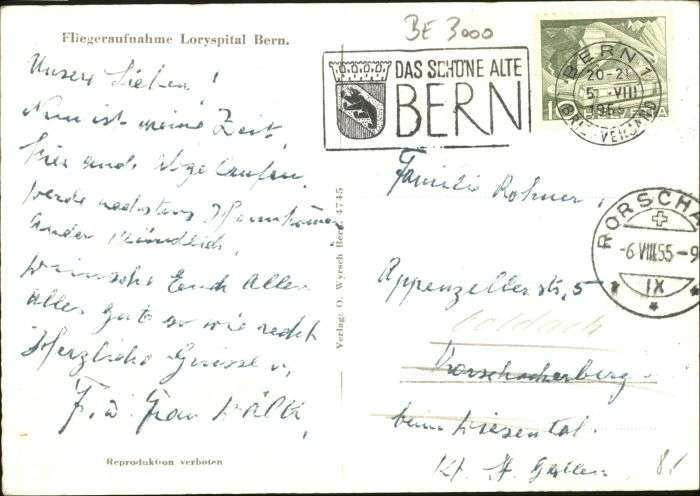 Fliegeraufnahme Loryspital Bern.
Unsere Lieben!
Nun ist meine Zeit,
hier auch abgelaufen,
werde nächstens Heimkommen
ander Mündlich,
wünsche Euch Allen
alles Gute so wie recht
Herzliche Grüsse v,
F. u Frau
Reproduktion verboten
Verlag: O. Wyrsch Bern 4745
BE 3000
DAS SCHÖNE ALTE
BERN
BERN 1
20-21
5 VIII
1955
BRIEFVERSAND
Familie Rohner,
RORSCHA
-6.VIII.55-9
IX
Appenzellerstr, 5
Goldach
Rorschacherberg
beim Wiesental.
Kt. St. Gallen